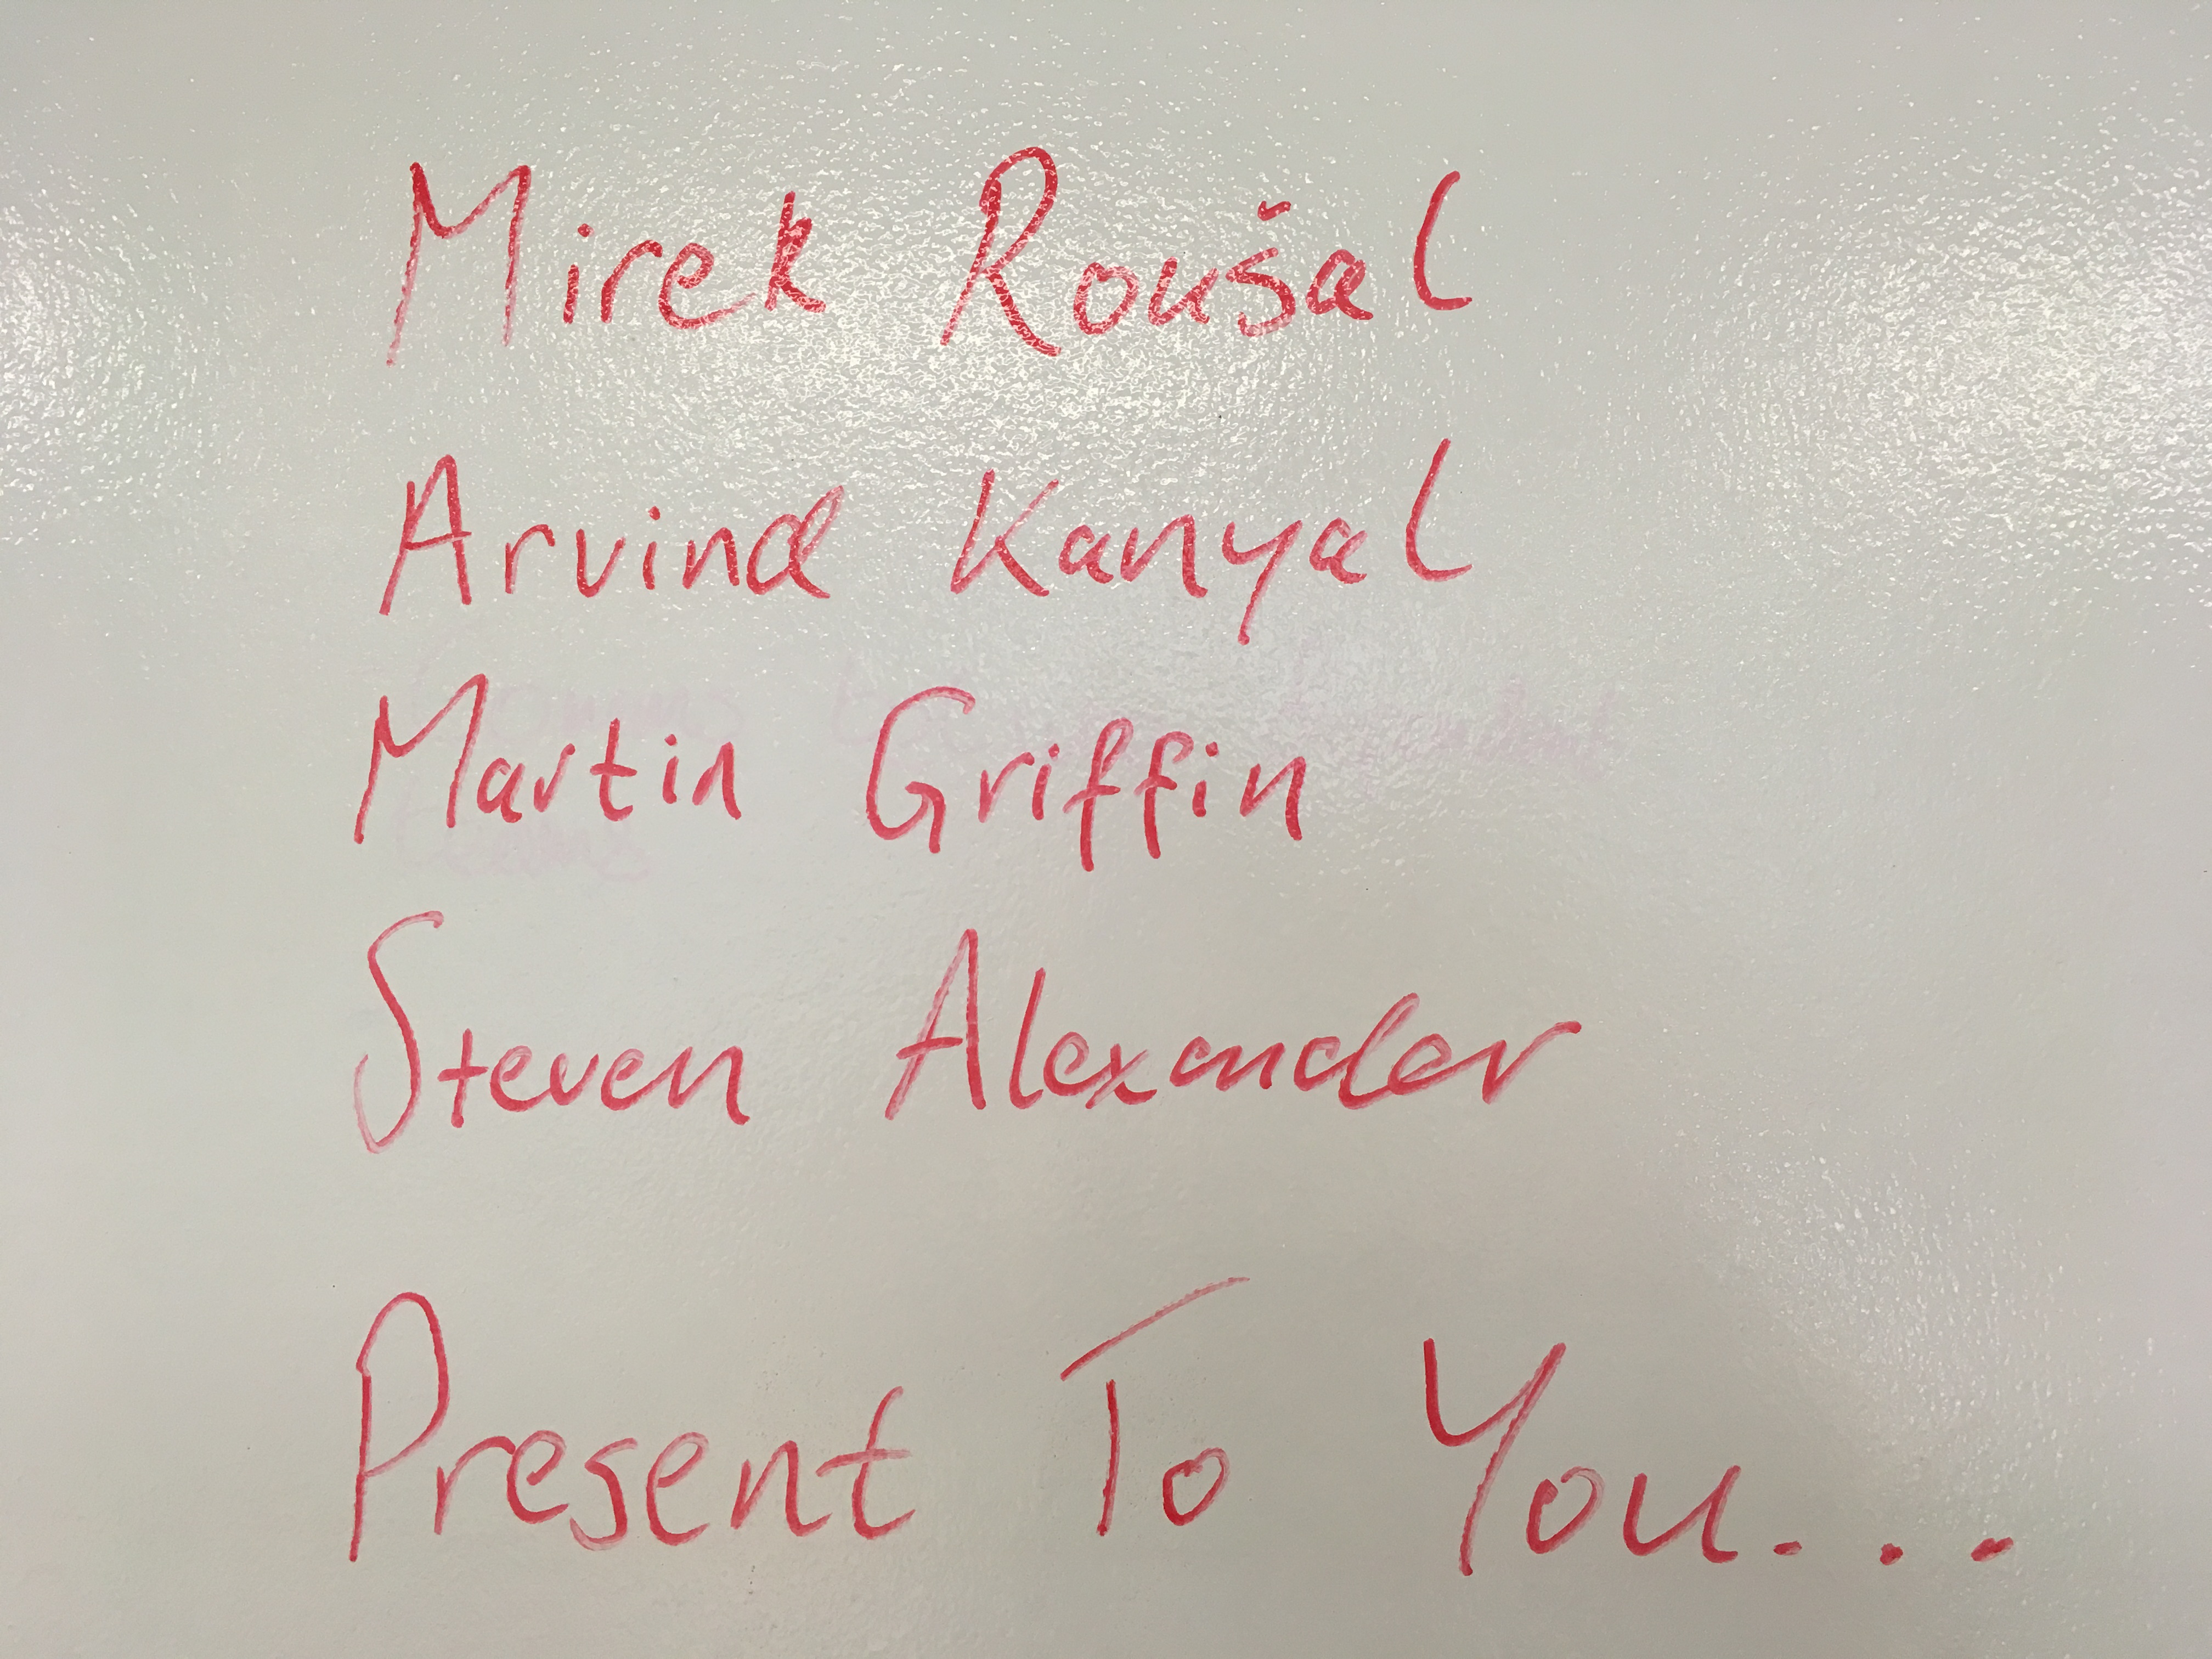 Mirek Roušal
Arvind Kanyal
Martin Griffin
Steven Alexander
Present To You...